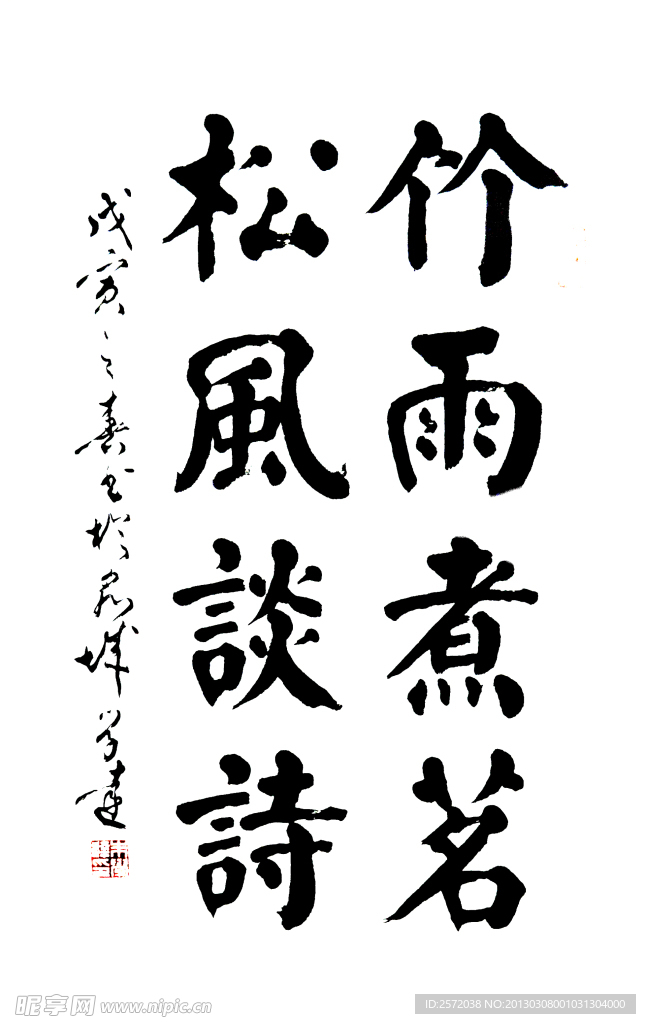 竹雨煮茗
松風談詩
戊寅之春書於昆城學達
昵享网 www.nipic.cn
ID:2572038 NO:20130308001031304000